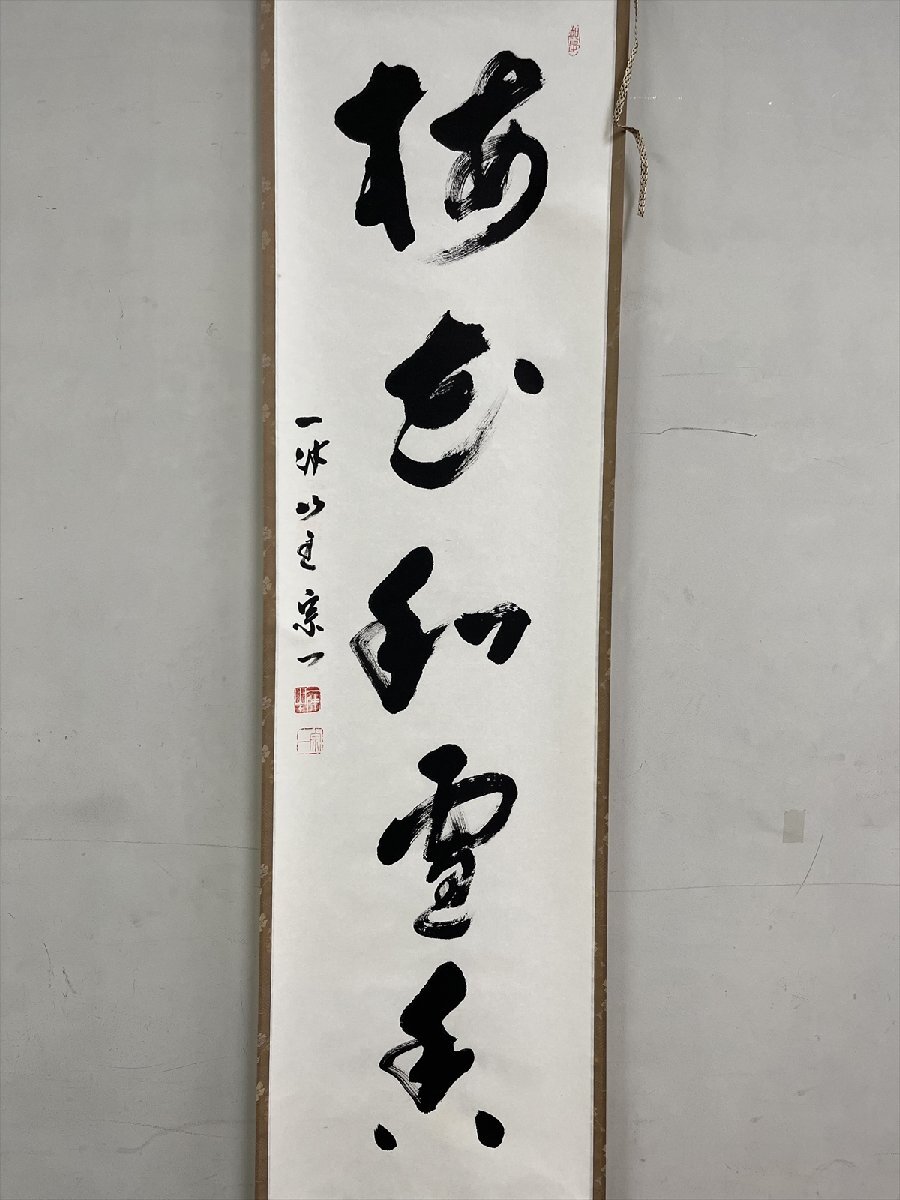 梅花和雪香
一休山主宗一